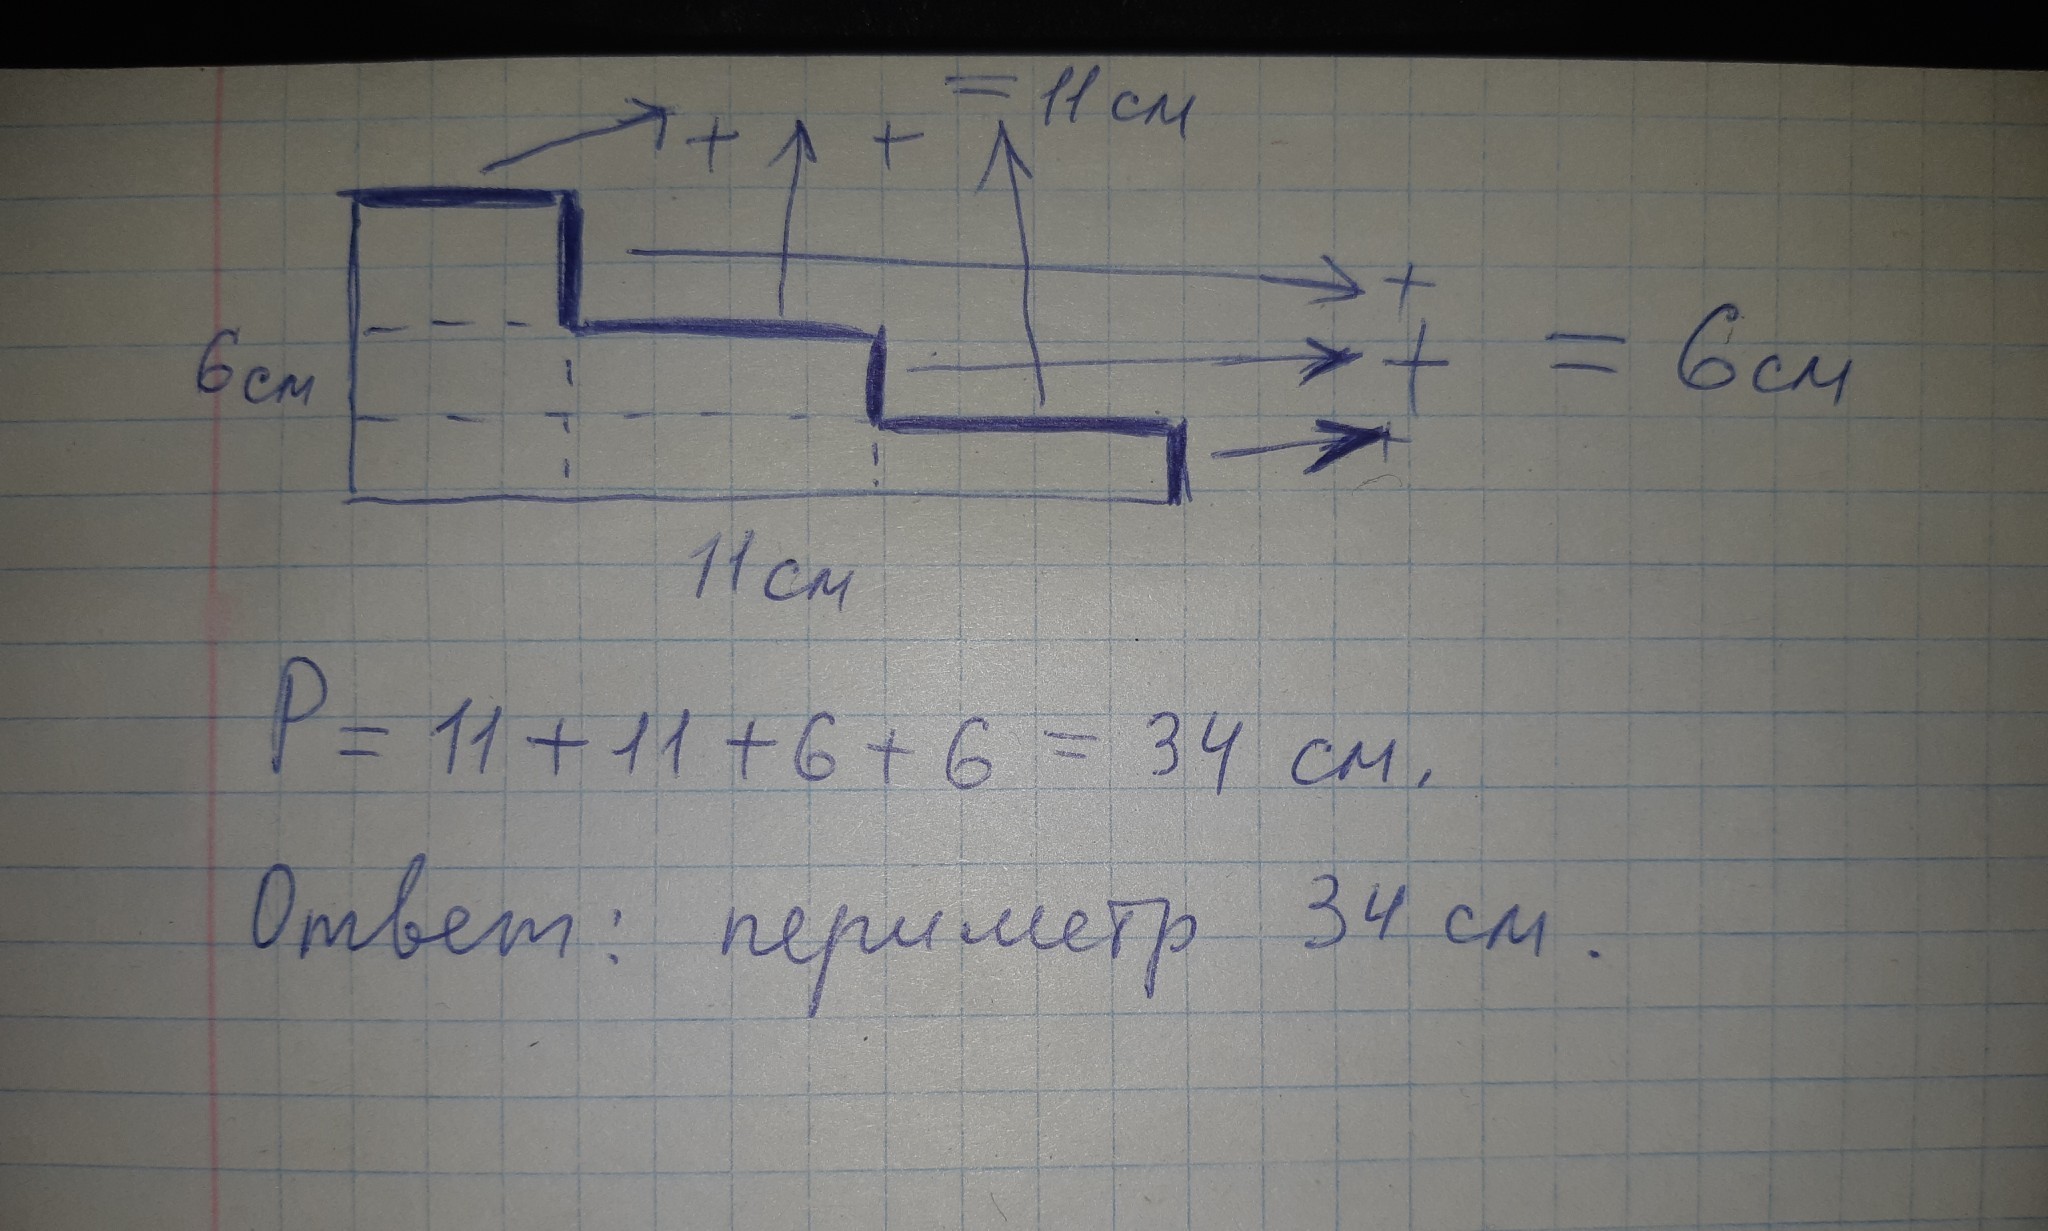 + + = 11 см
+
6 см + = 6 см
+
11 см
P = 11 + 11 + 6 + 6 = 34 см.
Ответ: периметр 34 см.